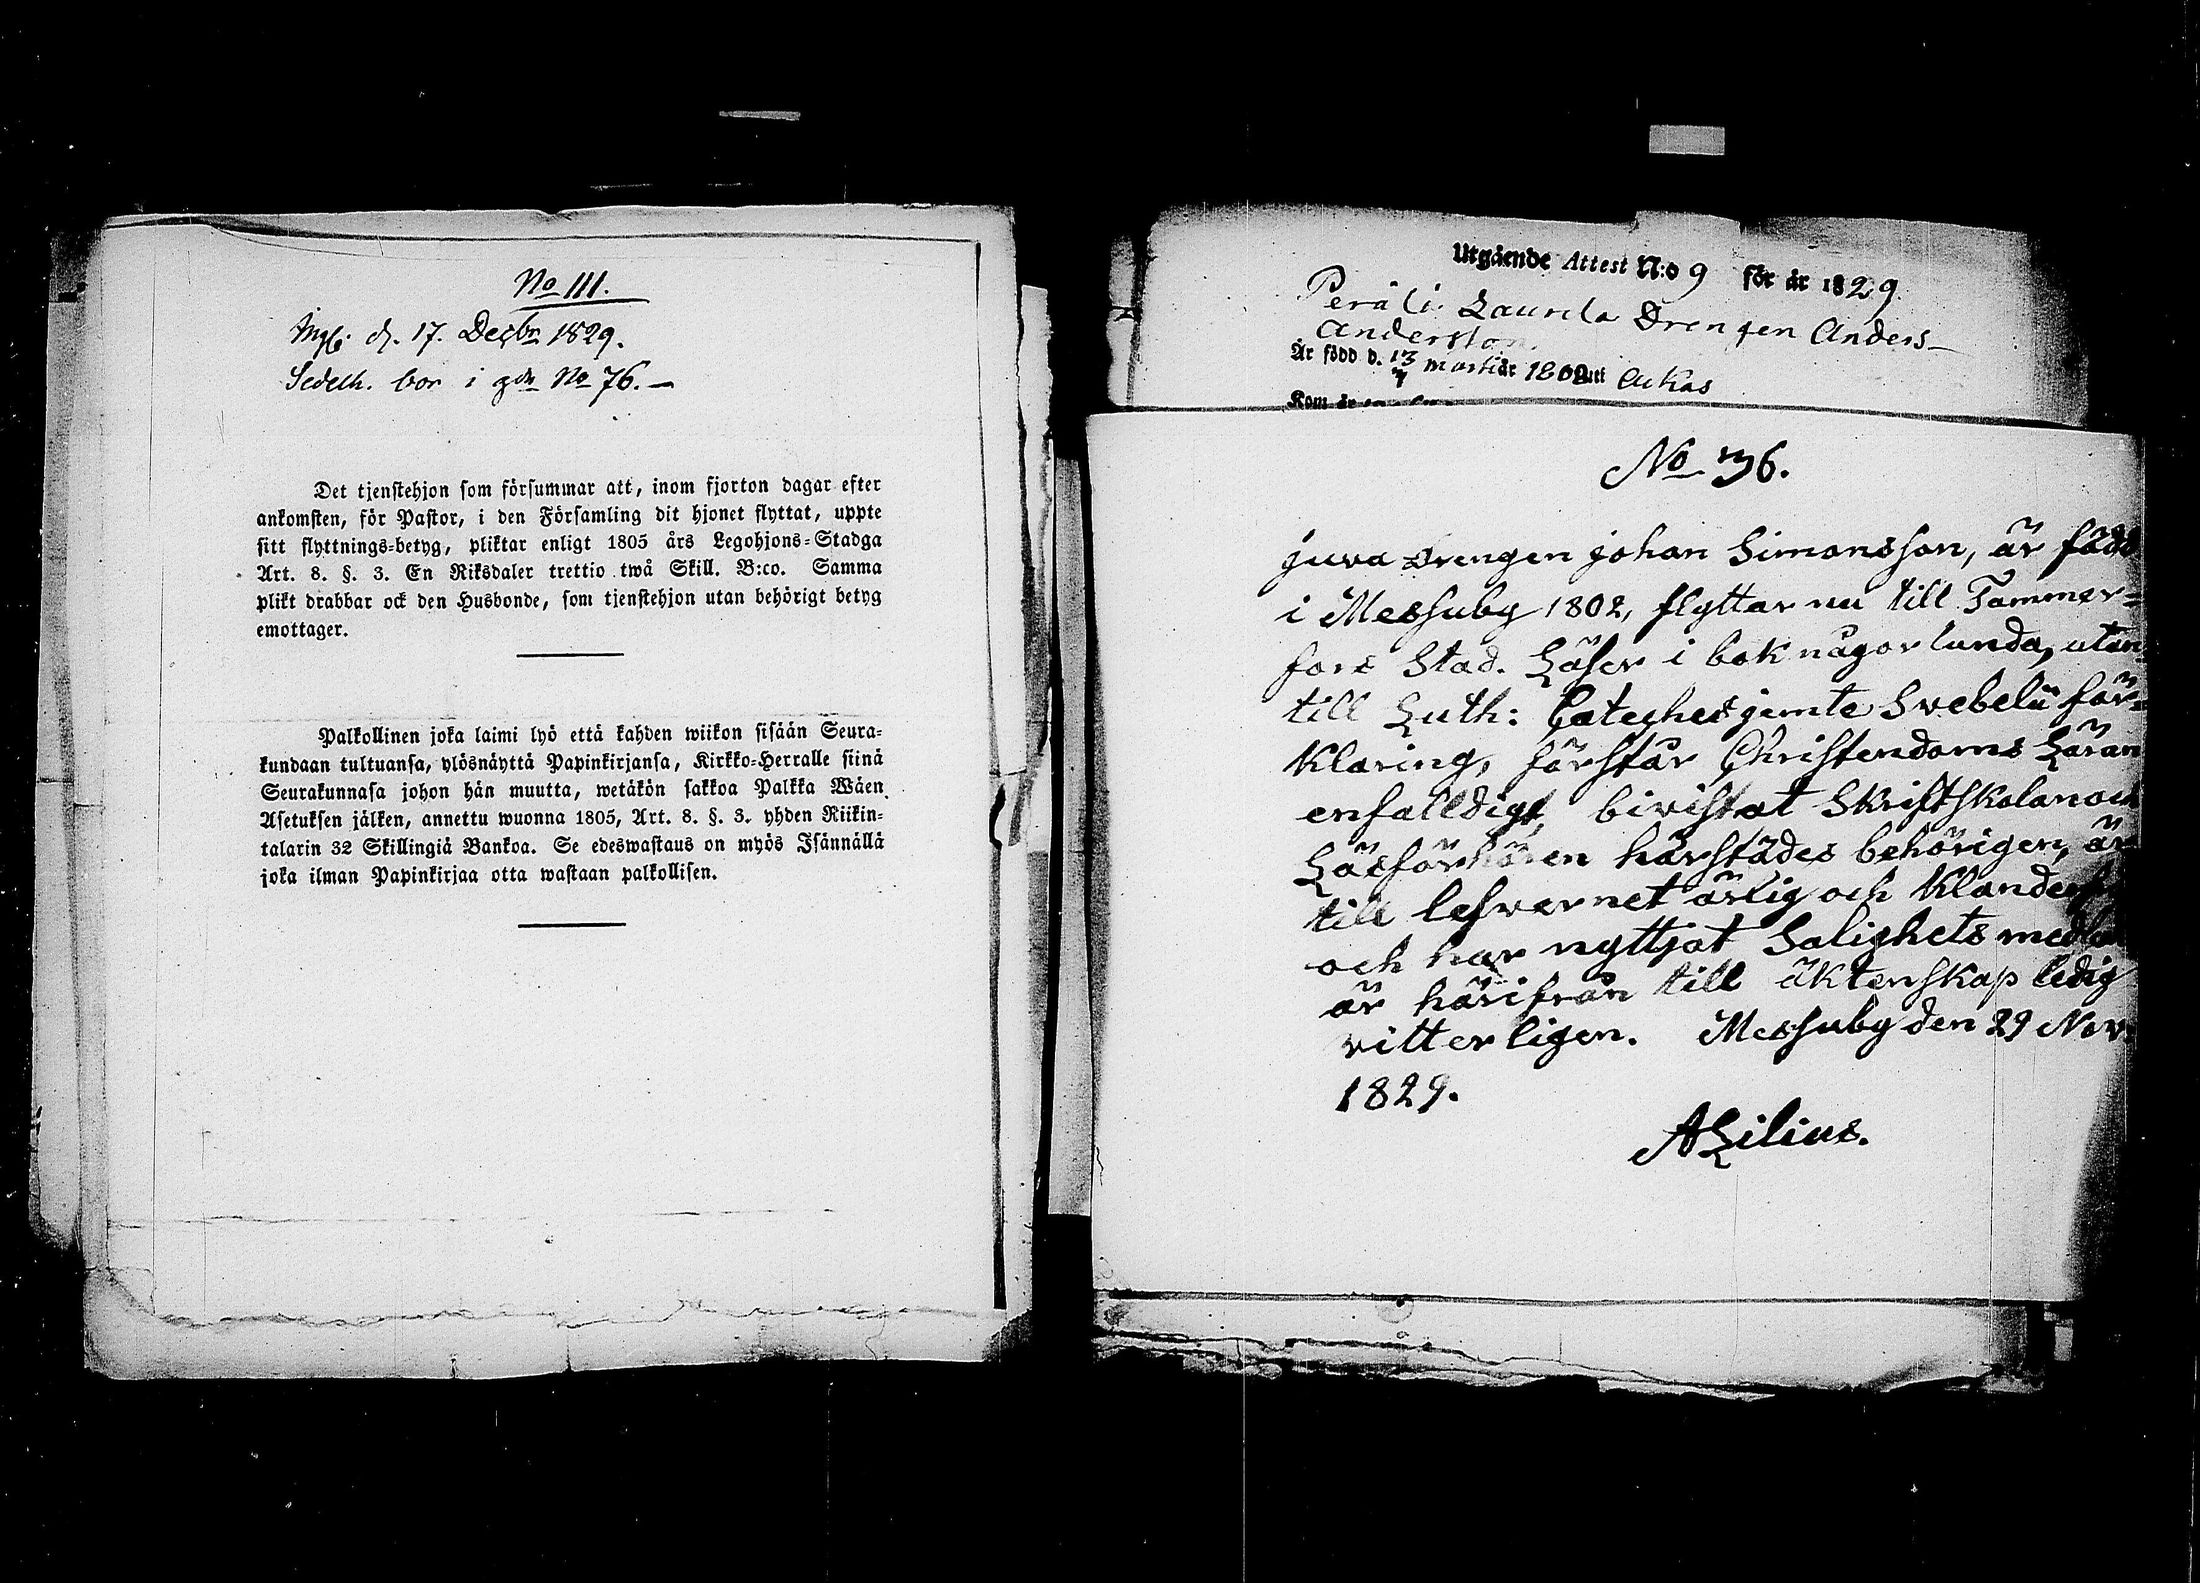 No 111.
d. 17. Decbr 1829.
Sedelh. bor i gdn No 76. –
Det tjenstehjon som försummar att, inom fjorton dagar efter
ankomsten, för Pastor, i den Församling dit hjonet flyttat, uppte
sitt flyttnings-betyg, pliktar enligt 1805 års Legohjons-Stadga
Art. 8. §. 3. En Riksdaler trettio twå Skill. B:co. Samma
plikt drabbar ock den Husbonde, som tjenstehjon utan behörigt betyg
emottager.
Palkollinen joka laimi lyö että kahden wiikon sisään Seura-
kundaan tultuansa, ylösnäyttä Papinkirjansa, Kirkko-Herralle siinä
Seurakunnasa johon hän muutta, wetäkön sakkoa Palkka Wäen
Asetuksen jälken, annettu wuonna 1805, Art. 8. §. 3. yhden Riikin-
talarin 32 Skillingiä Bankoa. Se edeswastaus on myös Isännällä
joka ilman Papinkirjaa otta wastaan palkollisen.
Utgående Attest N:o 9 för år 1829.
Laurila Drengen Anders
Andersson
Är född d. 13 martii år 1802 uti
Kom år
No 36.
juva Drengen johan Simonsson, är född
i Messuby 1802, flyttar nu till Tammer=
fors Stad. Läser i bok någor lunda, utan
till Luth: Cateches jemte Svebelii för=
klaring, förstår Christendoms Läran
enfalldigt, bivistat Skriftskolan och
Läsförhören härstädes behörigen, är
till lefvernet ärlig och
och har nyttjat Salighets medlen
är härifrån till äktenskap ledig
vitterligen. Messuby den 29 Nov.
1829.
ALilius.